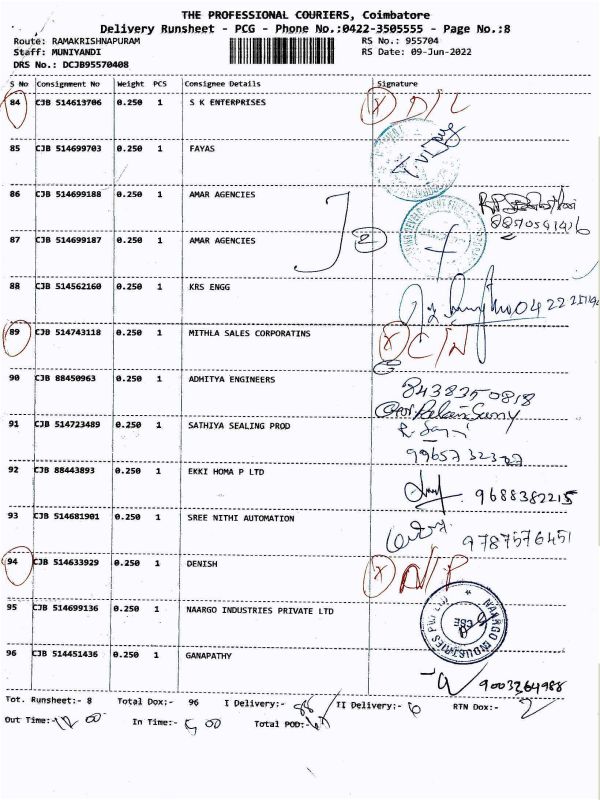 THE PROFESSIONAL COURIERS, Coimbatore
Delivery Runsheet - PCG - Phone No.:0422-3505555 - Page No.:8
Route: RAMAKRISHNAPURAM RS No.: 955704
Staff: MUNIYANDI RS Date: 09-Jun-2022
DRS No.: DCJB95570408
S No Consignment No Weight PCS Consignee Details Signature
84 CJB 514613706 0.250 1 S K ENTERPRISES X D/L
85 CJB 514699703 0.250 1 FAYAS
86 CJB 514699188 0.250 1 AMAR AGENCIES
87 CJB 514699187 0.250 1 AMAR AGENCIES 2
88 CJB 514562160 0.250 1 KRS ENGG
89 CJB 514743118 0.250 1 MITHLA SALES CORPORATINS X C/N
90 CJB 88450963 0.250 1 ADHITYA ENGINEERS 8438350818
91 CJB 514723489 0.250 1 SATHIYA SEALING PROD
92 CJB 88443893 0.250 1 EKKI HOMA P LTD 9688382215
93 CJB 514681901 0.250 1 SREE NITHI AUTOMATION 9787576451
94 CJB 514633929 0.250 1 DENISH X N/P
95 CJB 514699136 0.250 1 NAARGO INDUSTRIES PRIVATE LTD NAARGO INDUSTRIES PVT LTD CBE
96 CJB 514451436 0.250 1 GANAPATHY 9003264988
Tot. Runsheet:- 8 Total Dox:- 96 I Delivery:- 88 II Delivery:- 6 RTN Dox:- 2
Out Time:- 12 00 In Time:- 5 00 Total POD:-